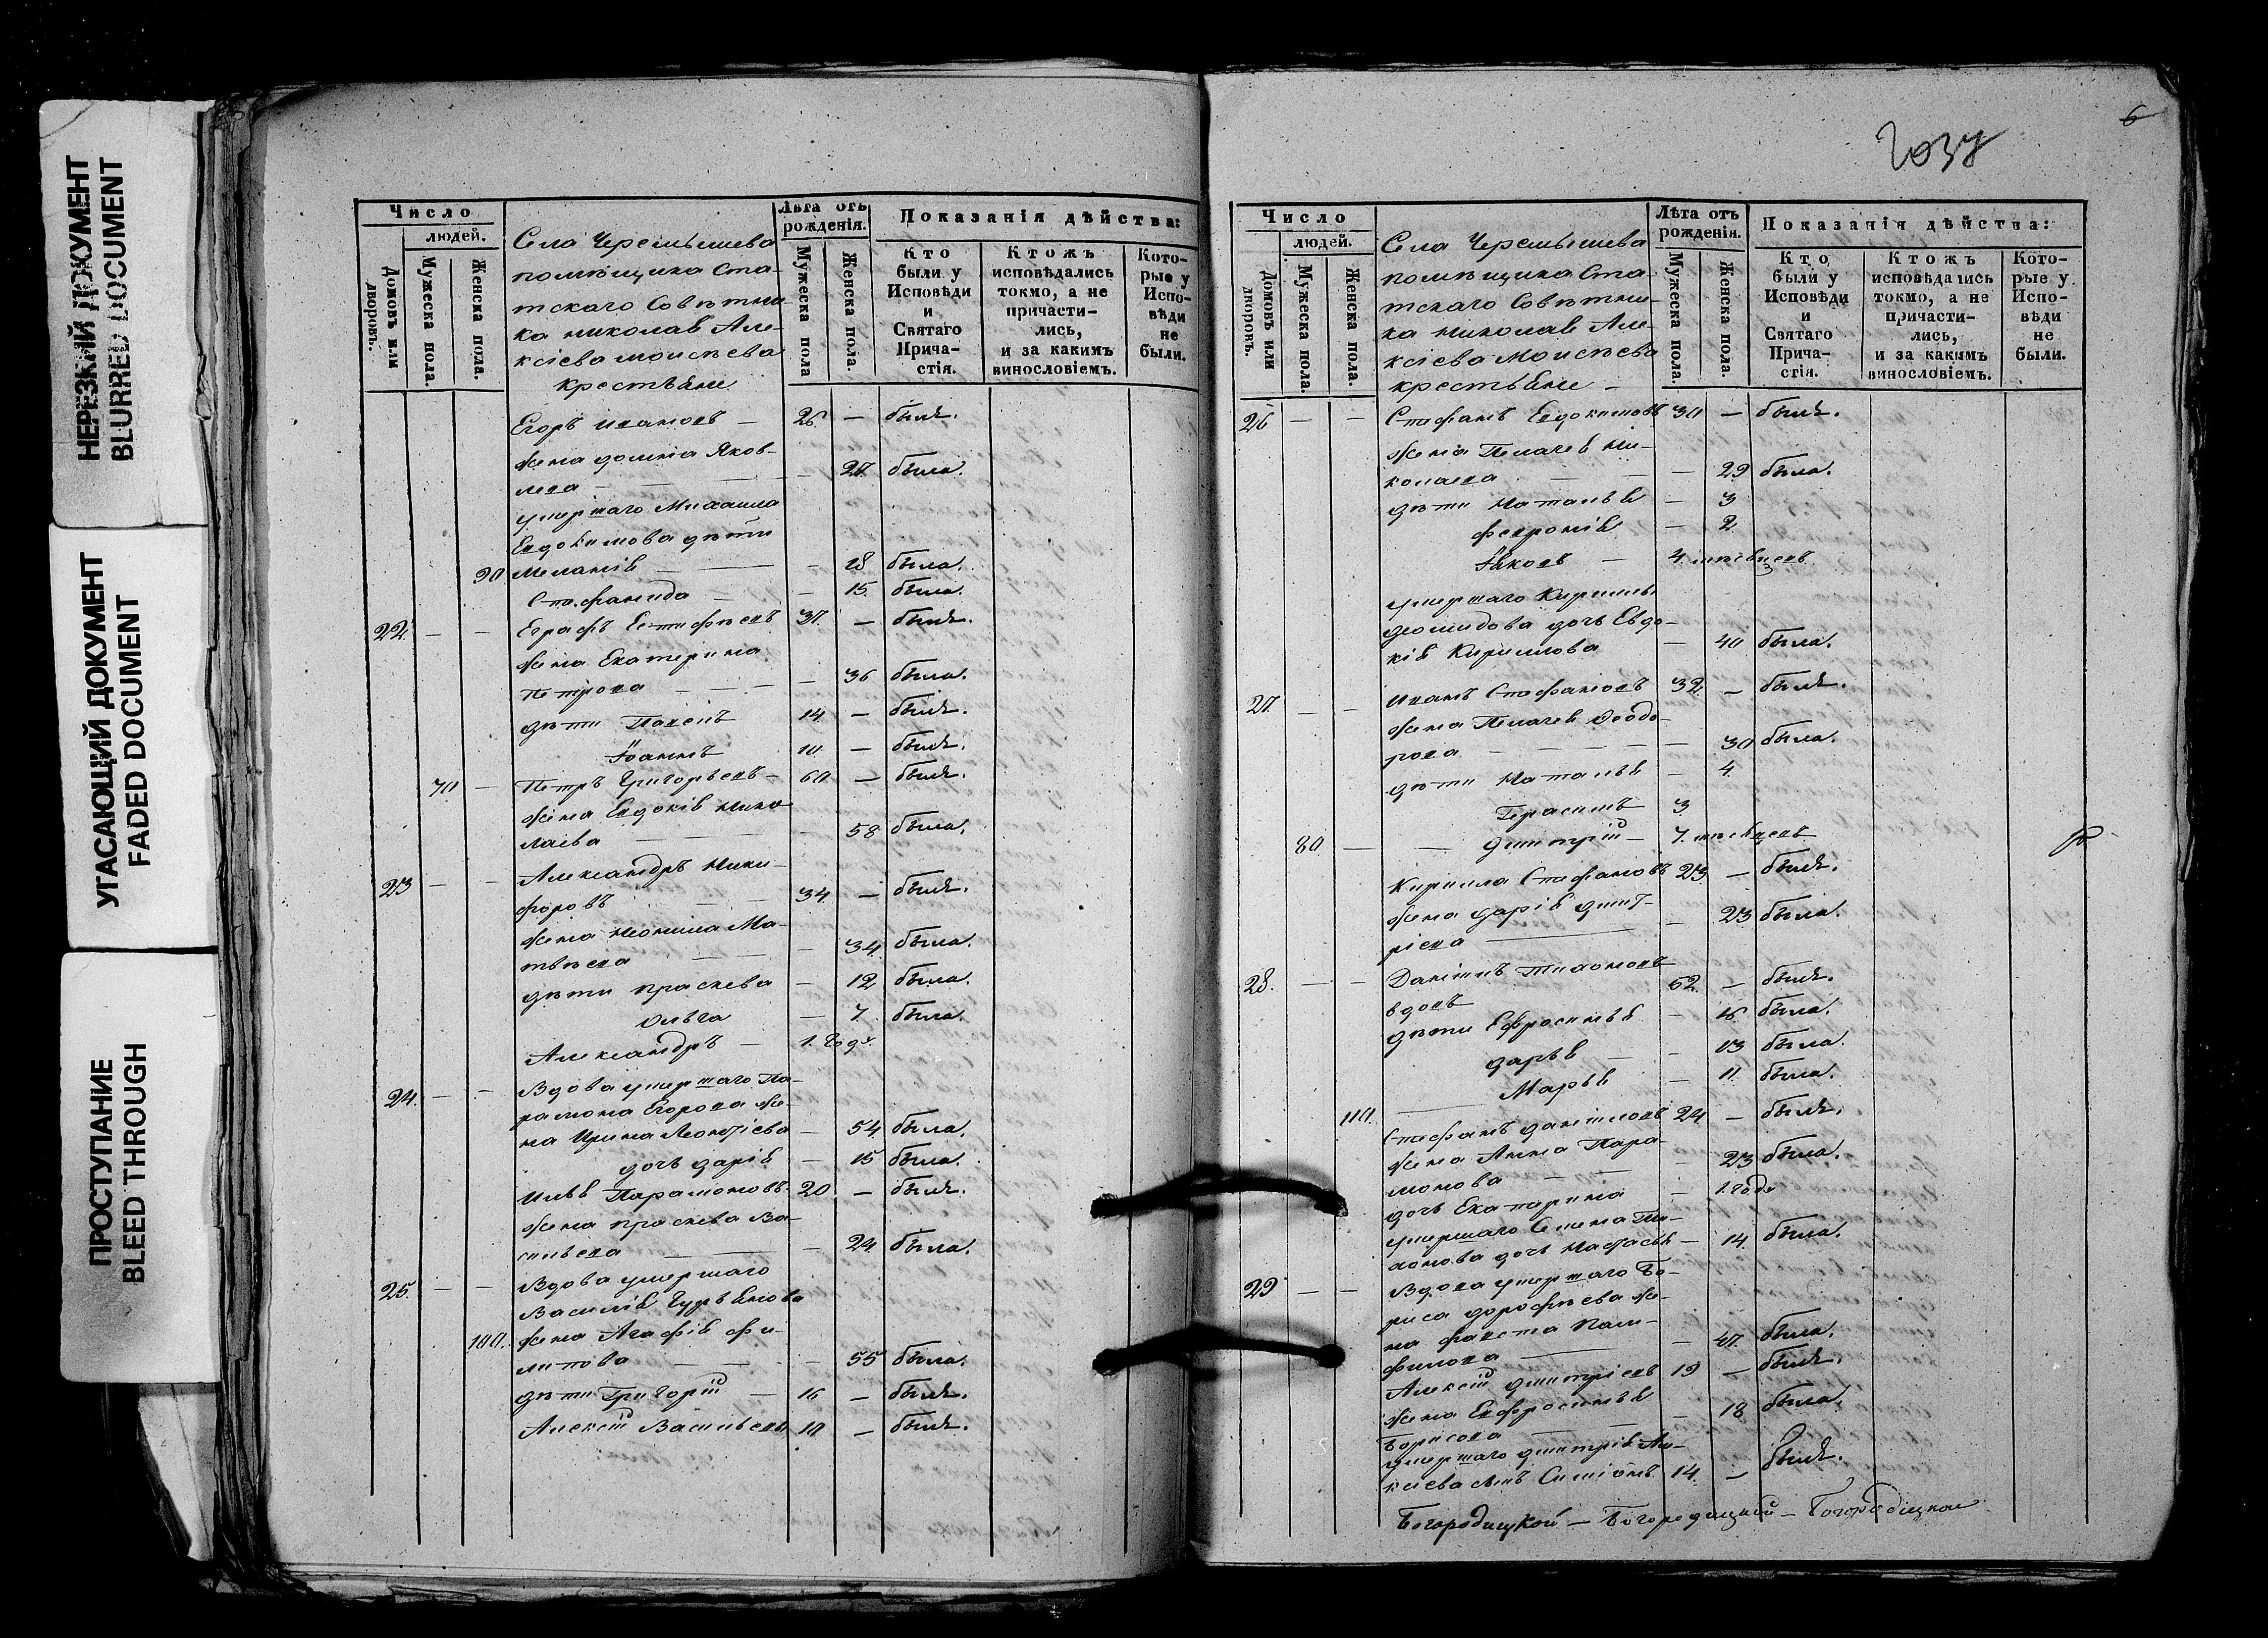 НЕРЕЗКИЙ ДОКУМЕНТ
BLURRED DOCUMENT
УГАСАЮЩИЙ ДОКУМЕНТ
FADED DOCUMENT
ПРОСТУПАНИЕ
BLEED THROUGH
Число
людей.
Домовъ или дворовъ.
Мужеска пола.
Женска пола.
Села Черемышева
помѣщика Ста-
тскаго Совѣтни-
ка Николая Але-
ксѣева Моисѣева
крестьяне
Лѣта отъ рожденія.
Мужеска пола
Женска пола.
Показанія дѣйства:
Кто были у Исповѣди и Святаго Прича-стія.
Ктожъ исповѣдались токмо, а не причасти-лись, и за какимъ винословіемъ.
Кото-рые у Испо-вѣди не были.
Егоръ Ивановъ — 26 — былъ.
жена Домна Яков-
лева — — 27 была.
умершаго Михаила
Евдокимова дѣти
90 Меланія — — 18 была.
Стефанида — — 15 была.
22 — — Евграфъ Естифѣевъ 37 — былъ.
жена Екатерина
Петрова — — 36 была.
дѣти Павелъ 14 — былъ.
Іоаннъ 10 — былъ.
70 — Петръ Григорьевъ — 60 — былъ.
жена Евдокія Нико-
лаева — — 58 была.
23 — — Александръ Ники-
форовъ — 34 — былъ.
жена Неонила Ма-
твѣева — — 34 была.
дѣти Праскева — 12 была.
Ольга — 7 была.
Александръ — 1 годъ
24. — — Вдова умершаго Па-
рамона Егорова же-
на Ирина Леонтіева — 54 была.
дочь Дарія — 15 была.
Илья Парамоновъ 20 — былъ.
жена Праскева Ва-
сильева — — 24 была.
25. — — Вдова умершаго
Василія Гурьянова
100. жена Агафія Фи-
липова — — 55 была.
дѣти Григорій — 16 — былъ.
Алексѣй Васильевы 10 — былъ.
6
Число
людей.
Домовъ или дворовъ.
Мужеска пола.
Женска пола.
Села Черемышева
помѣщика Ста-
тскаго Совѣтни-
ка Николая Але-
ксѣева Моисѣева
крестьяне —
Лѣта отъ рожденія.
Мужеска пола.
Женска пола.
Показанія дѣйства:
Кто были у Исповѣди и Святаго Прича-стія.
Ктожъ исповѣдались токмо, а не причасти-лись, и за какимъ винословіемъ.
Кото-рые у Испо-вѣди не были.
26 — — Стефанъ Евдокимовъ 30 — былъ.
жена Пелагея Ни-
колаева — — 29 была.
дѣти Наталья — 3
Феврония — 2
Іаковъ — 4 мѣсяцевъ
умершаго Кирилы
Деомидова дочь Евдо-
кія Кириллова — 40 была.
27. — — Иванъ Стефановъ 32 — былъ.
жена Пелагея Ѳеодо-
рова — — 30 была.
дѣти Наталья — 4.
Герасимъ 3
80 — — Димитрій — 7 мѣсяцевъ
Кирилла Стефановъ 23 — былъ.
жена Дарія Дмит-
ріева — — 23 была.
28. — — Даніилъ Тихоновъ
вдовъ 62 — былъ.
дѣти Ефросинья — 16 была.
Дарья — — 13 была.
Марья — 11 была.
110. Стефанъ Даніиловъ 24 — былъ.
жена Анна Пара-
монова — — 23 была.
дочь Екатерина — 1 годъ
умершаго Семена Ти-
хонова дочь Настасья — 14. была.
29 — — Вдова умершаго Бо-
риса Дорофѣева же-
на Фавста Пам-
филова — — 47 была.
Алексѣй Дмитріевъ 19 — былъ.
жена Евфросинья
Борисова — — 18 была.
умершаго Дмитрія Але-
ксѣева сынъ Симіонъ 14. — былъ.
Богородицкой — Богородицкой — Богородицкой